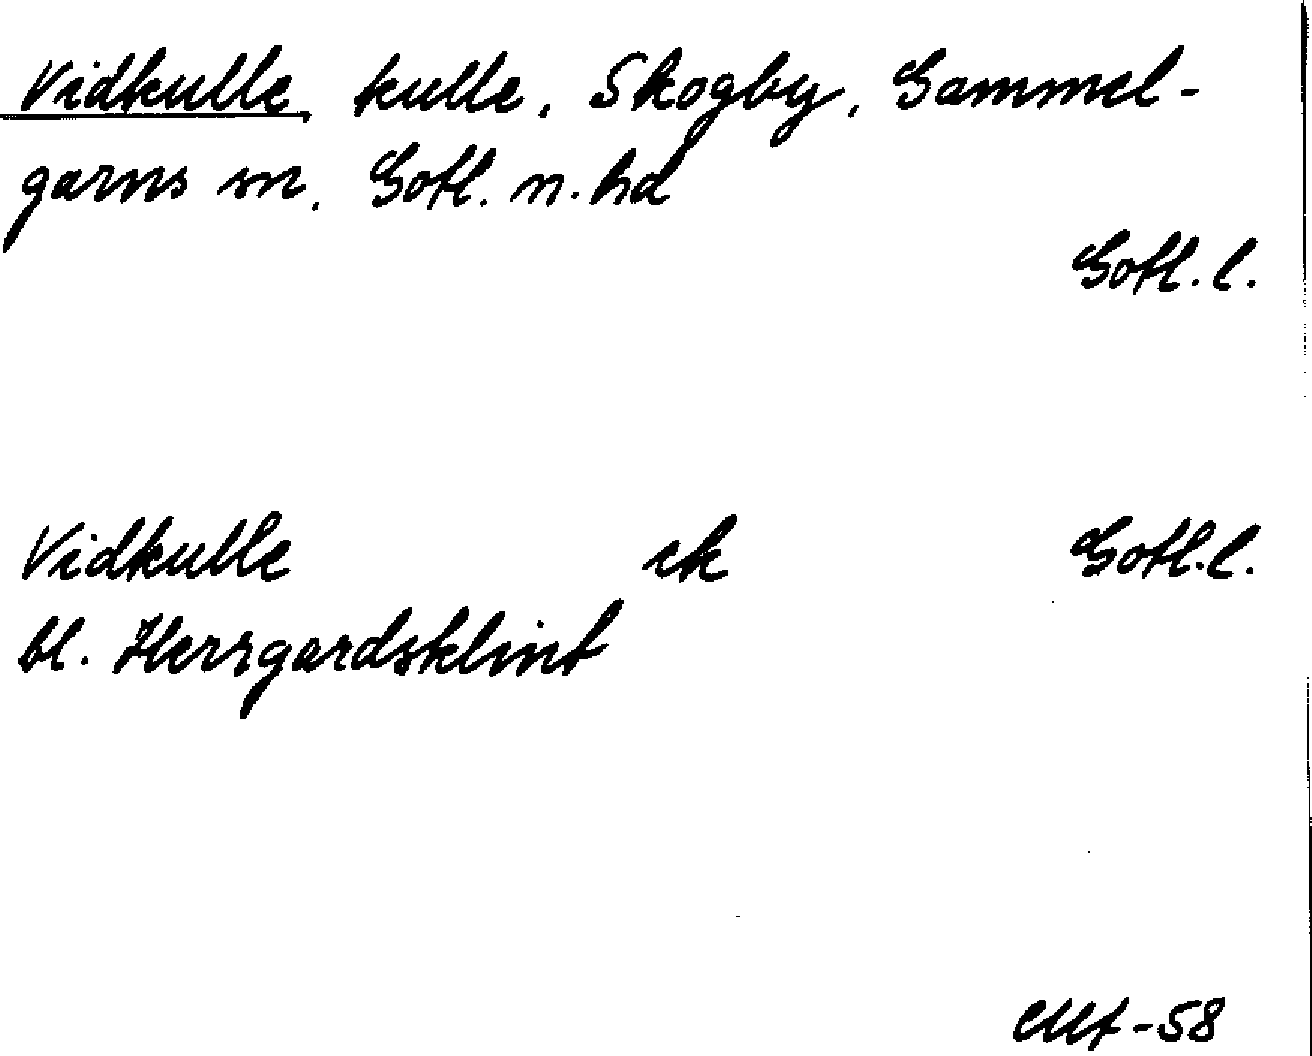 Vidkulle, kulle, Skogby, Gammel-
garns sn, Gotl. n. hd
Gotl. l.
Vidkulle ek Gotl. l.
bl. Herrgardsklint
-58